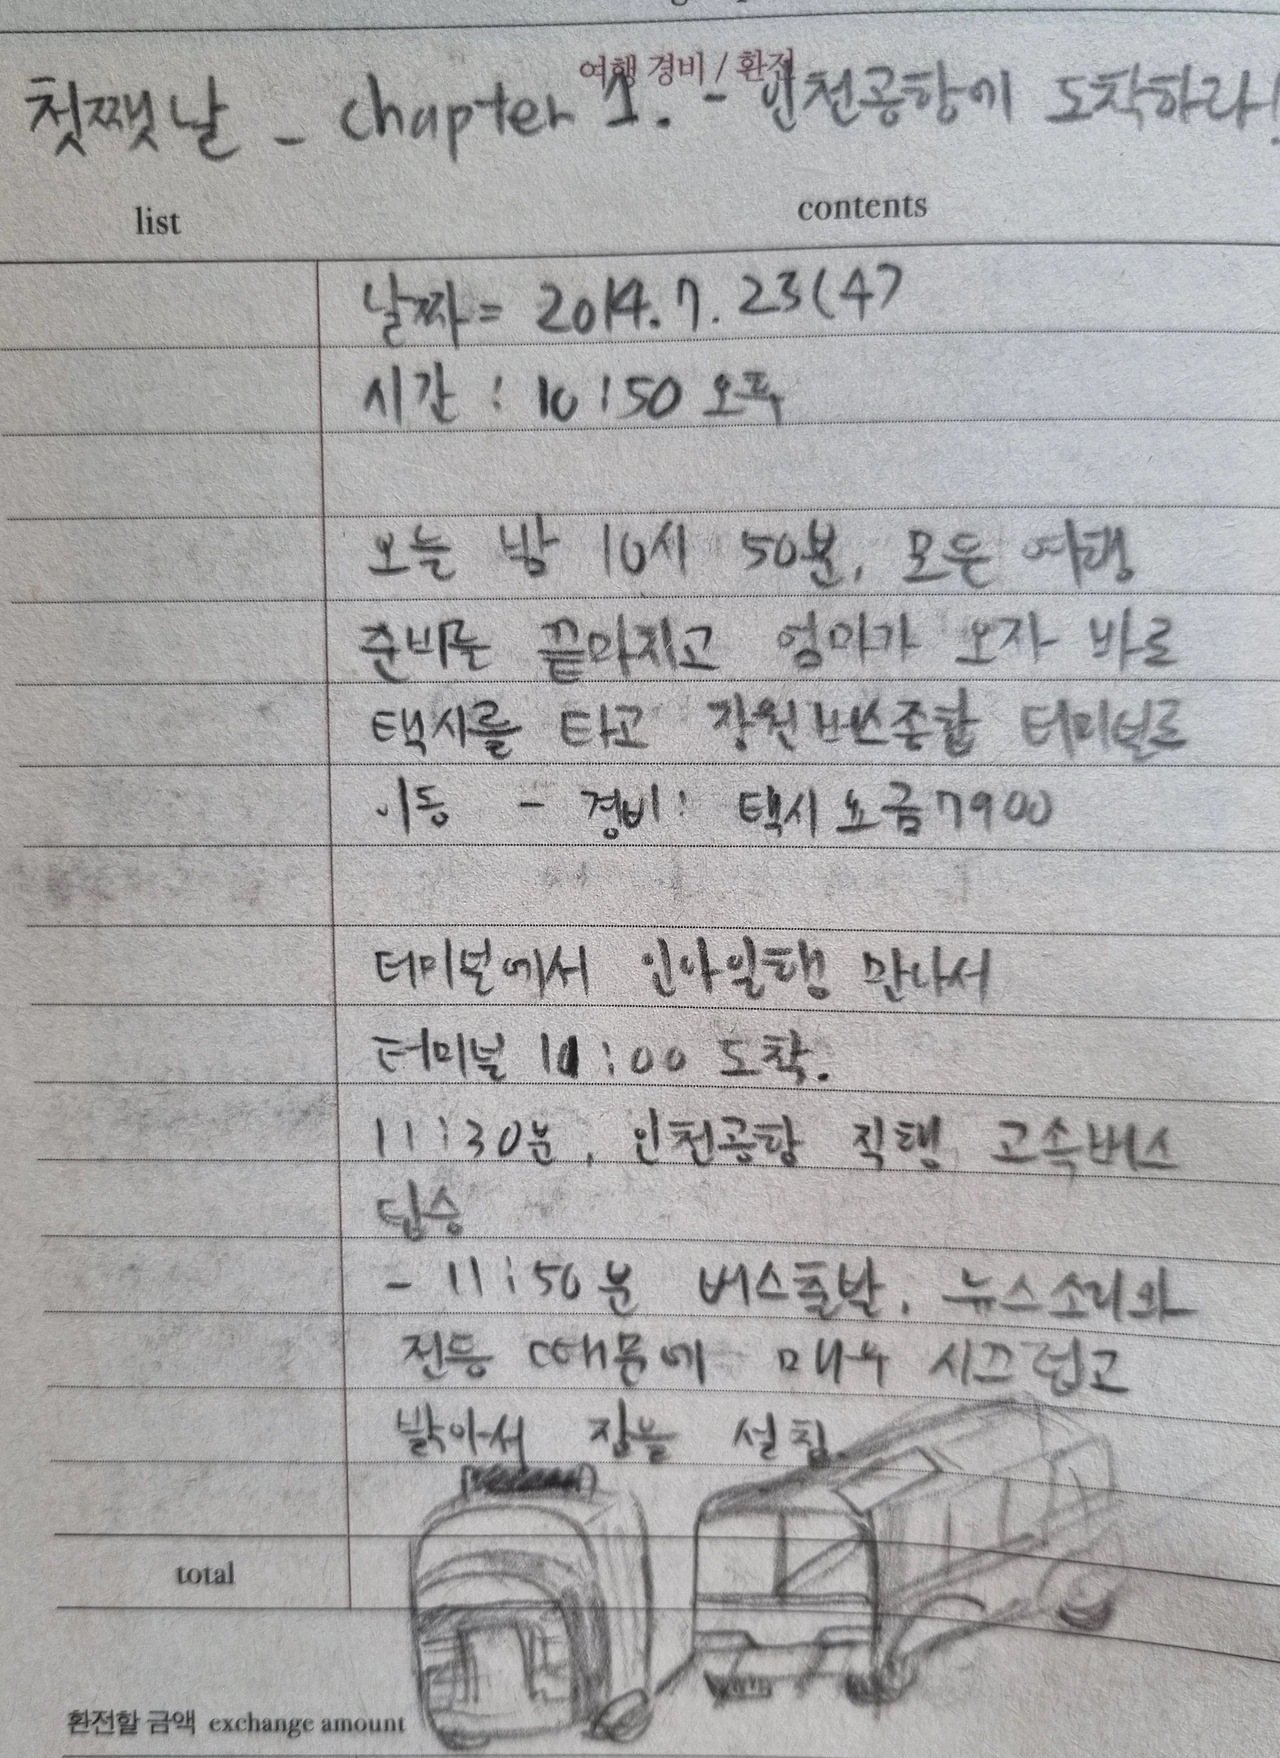 여행 경비 / 환전
첫째날 - chapter 1. - 인천공항에 도착하라!
list
contents
날짜 = 2014. 7. 23(수)
시간 : 10:50 오후
오늘 밤 10시 50분, 모든 여행
준비를 끝마치고 엄마가 오자 바로
택시를 타고 창원버스종합 터미널로
이동 - 경비: 택시 요금 7900
터미널에서 인아일행 만나서
터미널 11:00 도착.
11:30분, 인천공항 직행 고속버스
탑승
- 11:50분 버스출발. 뉴스소리와
전등 때문에 매우 시끄럽고
밝아서 잠을 설침.
total
환전할 금액 exchange amount